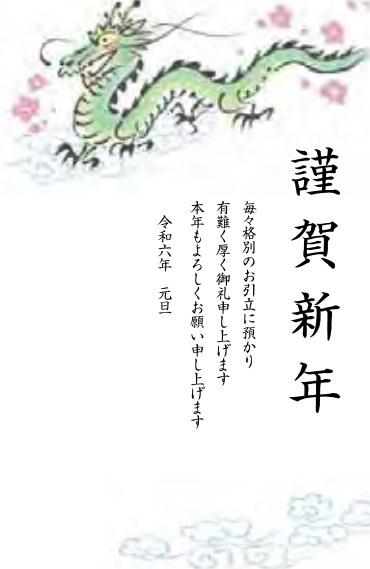 謹賀新年
毎々格別のお引立に預かり
有難く厚く御礼申し上げます
本年もよろしくお願い申し上げます
令和六年　元旦